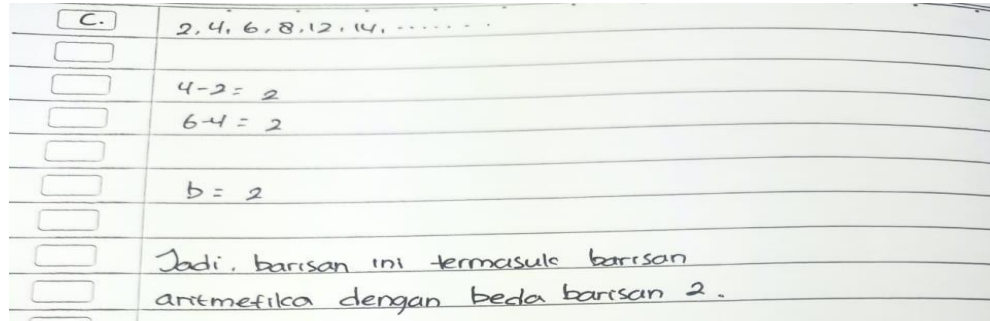 C. 2, 4, 6, 8, 12, 14, .......
4-2= 2
6-4 = 2
b = 2
Jadi, barisan ini termasuk barisan
aritmetika dengan beda barisan 2.